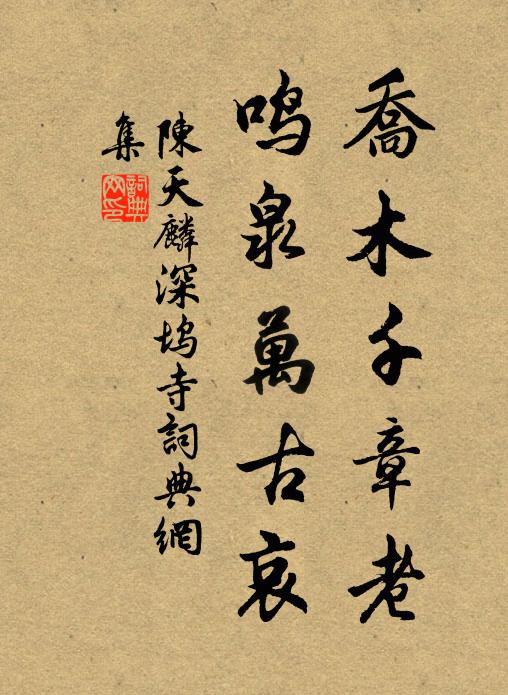 喬木千章老
鳴泉萬古哀
陳天麟深塢寺詞典網
集
詞典網印